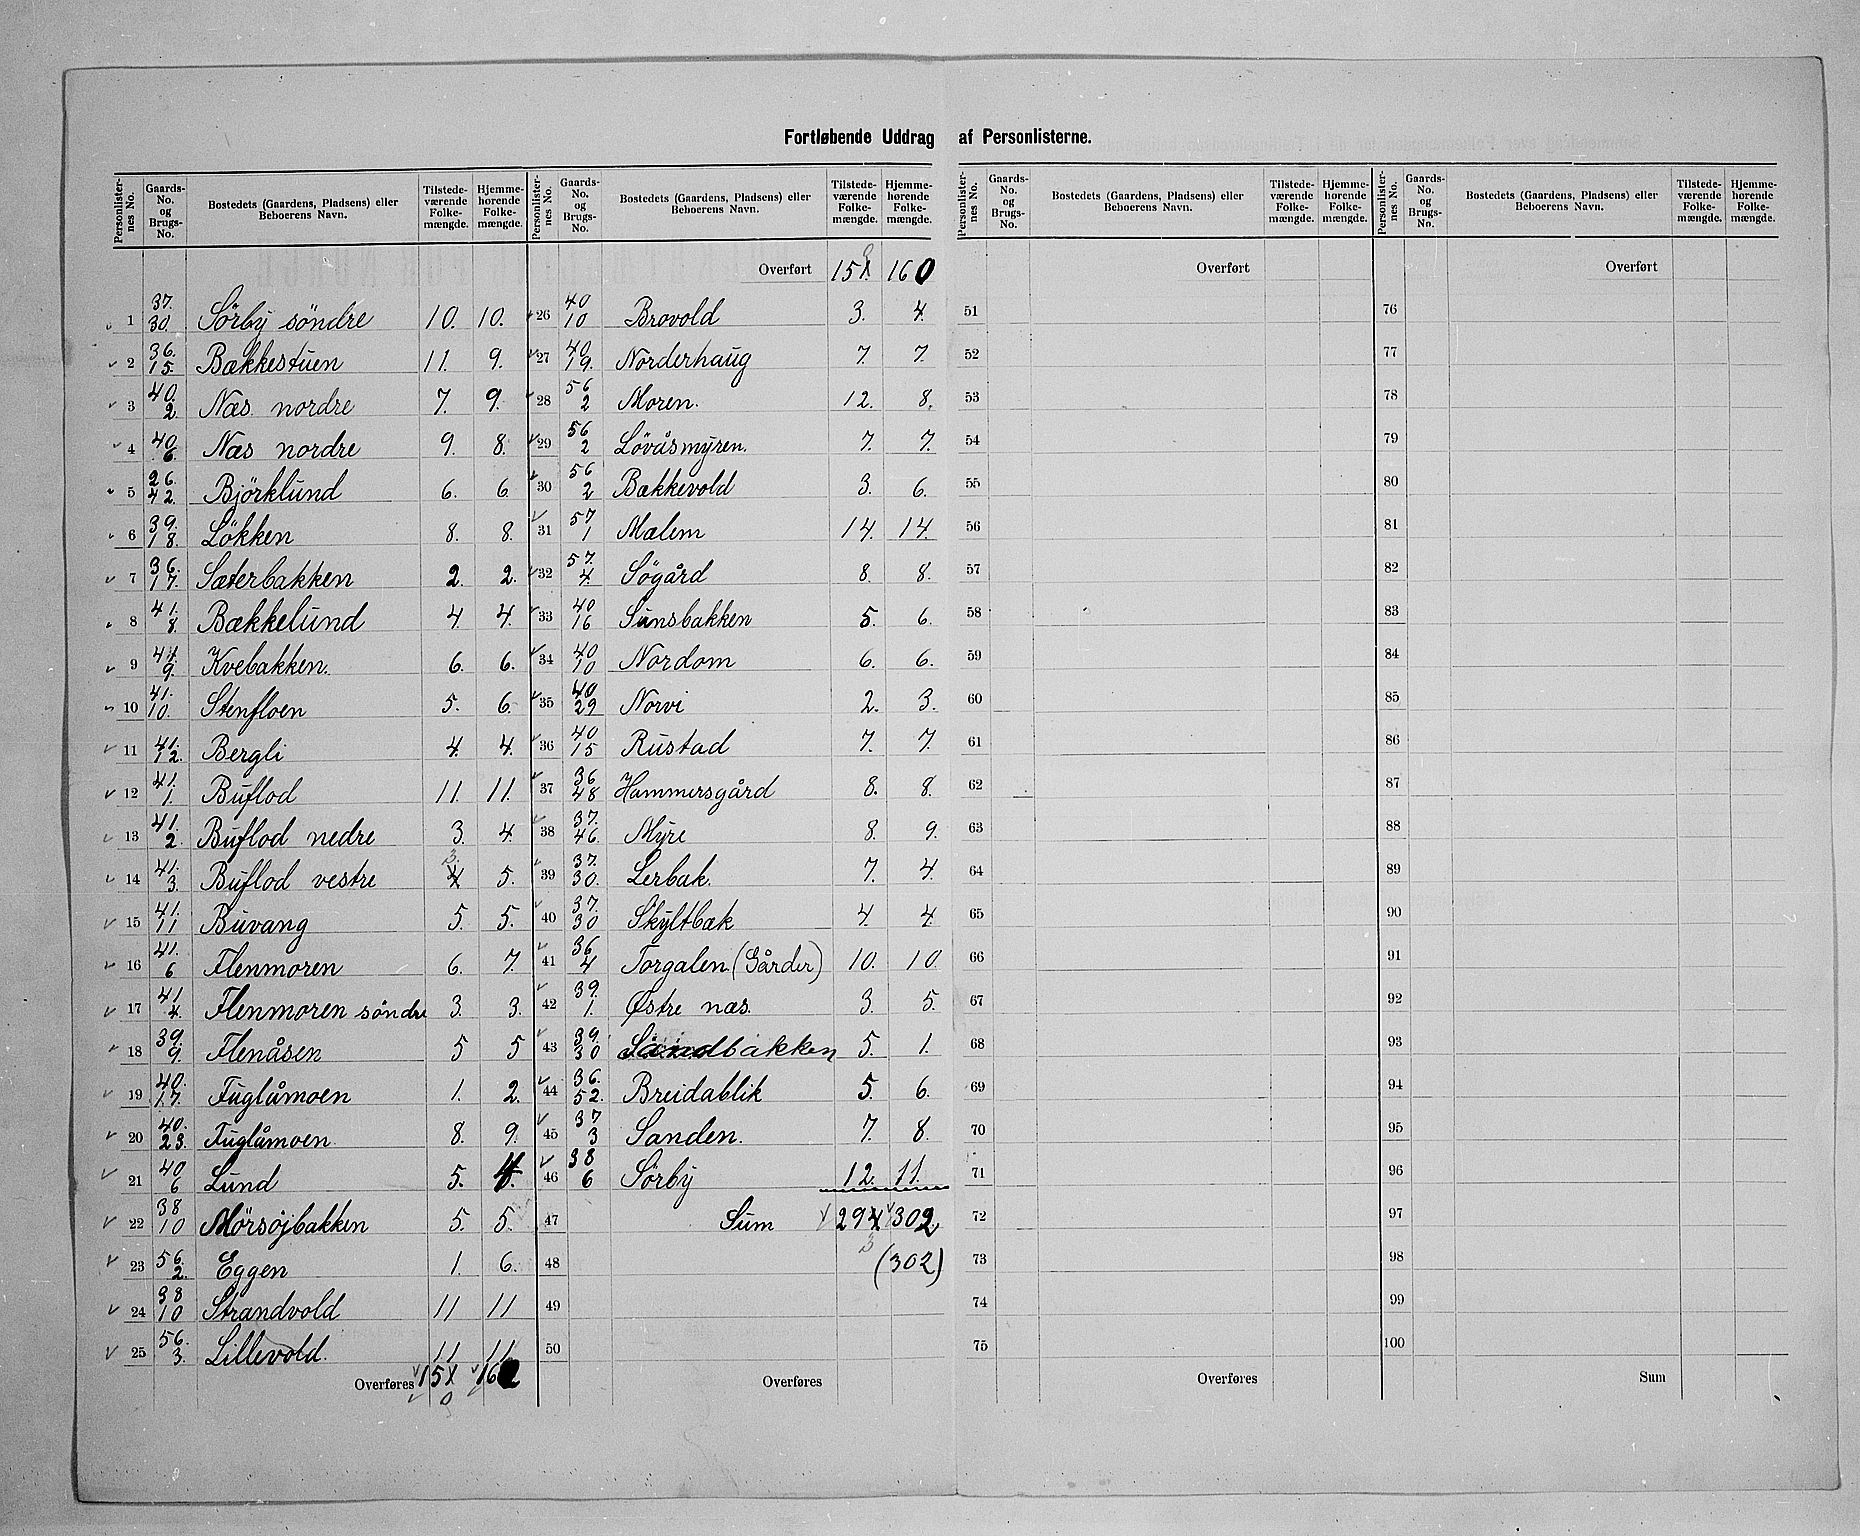 Fortløbende Uddrag af Personlisterne.
Personlisternes No. | Gaards-No. og Brugs-No. | Bostedets (Gaardens, Pladsens) eller Beboerens Navn. | Tilstedeværende Folkemængde. | Hjemmehørende Folkemængde.
1 37./30. Sörby söndre 10. 10.
2 36./15. Bækkestuen 11. 9.
3 40./2. Næs nordre 7. 9.
4 40./6. Næs nordre 9. 8.
5 26./42. Björklund 6. 6.
6 39./18. Lökken 8. 8.
7 36./17. Sæterbakken 2. 2.
8 41./8. Bækkelund 4. 4.
9 41/9. Kvebakken. 6. 6.
10 41./10. Stenfloen 5. 6.
11 41./12. Bergli 4. 4.
12 41./1. Buflod 11. 11.
13 41./2. Buflod nedre 3. 4.
14 41./3. Buflod vestre 3. 5.
15 41./11 Buvang 5. 5.
16 41./6 Flenmoren 6. 7.
17 41/4. Flenmoren söndre 3. 3.
18 39./9. Flenåsen 5 5
19 40./17. Fuglåmoen 1. 2.
20 40./23. Fuglåmoen. 8. 9.
21 40/6 Lund 5. 4.
22 38/10 Mörsöjbakken 5. 5.
23 56./2. Eggen 1. 6.
24 38/10 Strandvold 11 11
25 56./3. Lillevold. 11 11
Overføres 150 162
Personlisternes No. | Gaards-No. og Brugs-No. | Bostedets (Gaardens, Pladsens) eller Beboerens Navn. | Tilstedeværende Folkemængde. | Hjemmehørende Folkemængde.
Overført 150 160
26 40/10 Brovold 3. 4.
27 40/19. Norderhaug 7. 7.
28 56/2 Moren. 12. 8.
29 56/2 Lövåsmyren. 7. 7.
30 56/2 Bækkevold 3. 6.
31 57/1 Mælem 14. 14.
32 57./4. Sögård 8. 8.
33 40/16 Sunsbakken 5. 6.
34 40/10 Nordom 6. 6.
35 40/29 Norvi 2. 3.
36 40/15 Rustad 7. 7.
37 36/48 Hammersgård 8. 8.
38 37./46. Myre 8. 9.
39 37./30. Lerbak. 7. 4.
40 37./30 Skyltbæk 4. 4.
41 36/4 Torgalen (Gårder) 10. 10.
42 39./1. Østre næs. 3. 5.
43 39./30 Sandbakken 5. 1.
44 36./52. Breidablik 5. 6.
45 37/3 Sanden. 7. 8.
46 38/6 Sörby 12. 11.
47 Sum 294 302
3
48 (302)
49
50
Overføres
Personlisternes No. | Gaards-No. og Brugs-No. | Bostedets (Gaardens, Pladsens) eller Beboerens Navn. | Tilstedeværende Folkemængde. | Hjemmehørende Folkemængde.
Overført
51
52
53
54
55
56
57
58
59
60
61
62
63
64
65
66
67
68
69
70
71
72
73
74
75
Overføres
Personlisternes No. | Gaards-No. og Brugs-No. | Bostedets (Gaardens, Pladsens) eller Beboerens Navn. | Tilstedeværende Folkemængde. | Hjemmehørende Folkemængde.
Overført
76
77
78
79
80
81
82
83
84
85
86
87
88
89
90
91
92
93
94
95
96
97
98
99
100
Sum